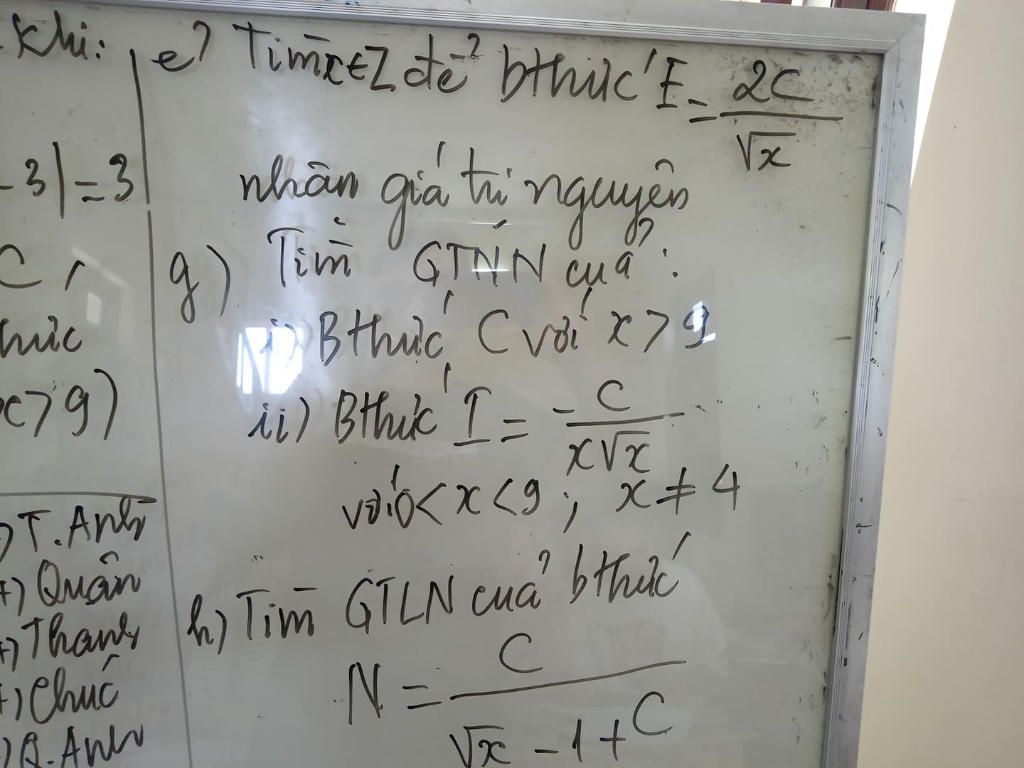 Khi:
- 3| = 3
C
thức
x > 9)
T. Anh
+) Quân
+) Thanh
+) Chúc
Q. Anh
e) Tìm x ∈ Z để bthức E = 2C / √x
nhân giá trị nguyên
g) Tìm GTNN của :
i) Bthức C với x > 9
ii) Bthức I = -C / x√x
với 0 < x < 9 ; x ≠ 4
h) Tìm GTLN của bthức
N = C / √x - 1 + C